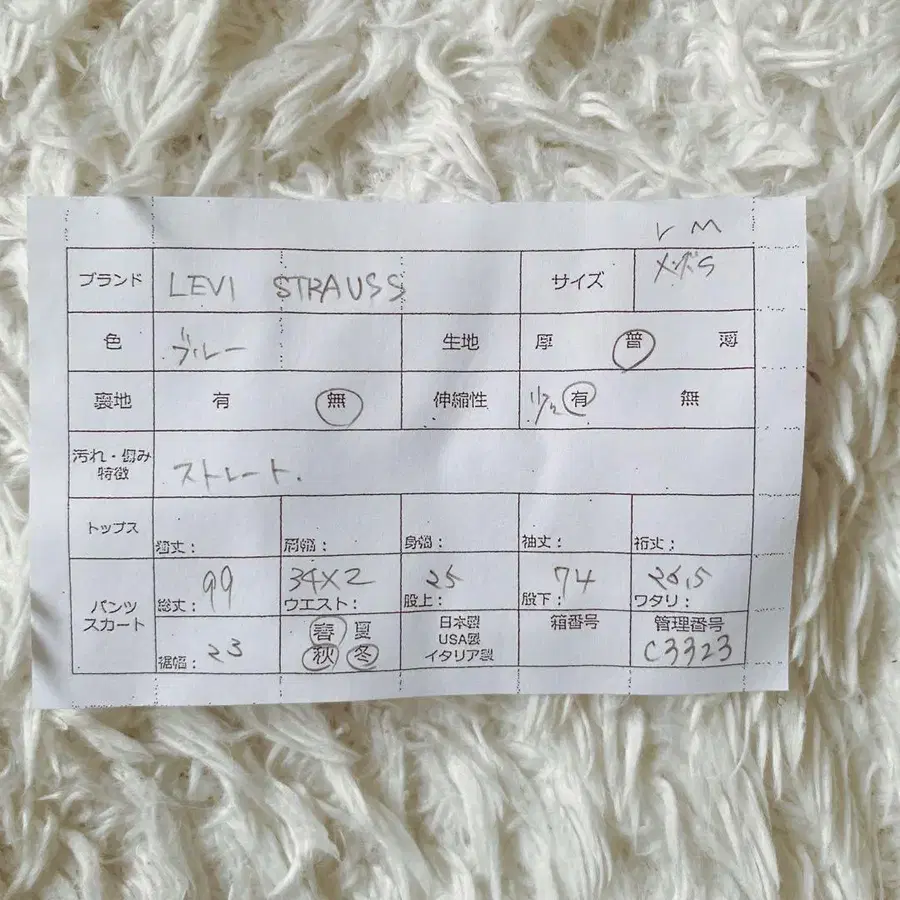 レ M
ブランド LEVI STRAUSS サイズ メンズS
色 ブルー 生地 厚 普 薄
裏地 有 無 伸縮性 少々 有 無
汚れ・傷み
特徴 ストレート.
トップス 着丈: 肩幅: 身幅: 袖丈: 裄丈:
パンツ
スカート
総丈: 99 ウエスト: 34×2 股上: 25 股下: 74 ワタリ: 26.5
裾幅: 23 春 夏 秋 冬
日本製
USA製
イタリア製
箱番号
管理番号
C3323